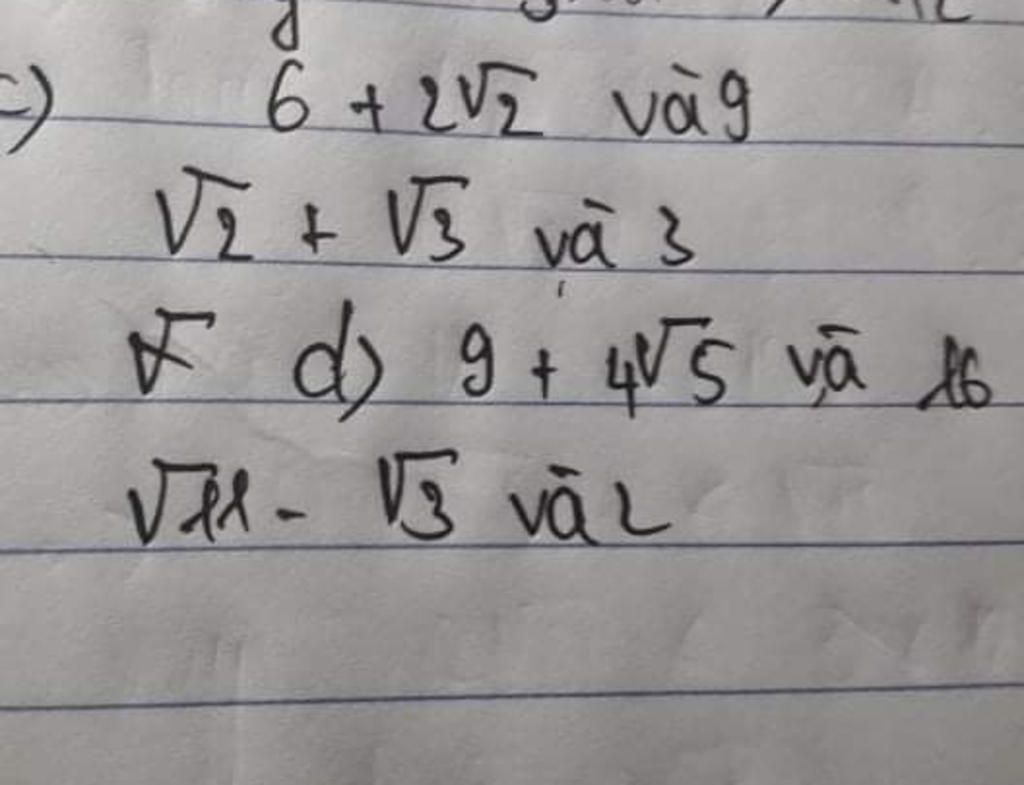 c) 6 + 2√2 và 9
√2 + √3 và 3
d) 9 + 4√5 và 16
√11 - √3 và 2